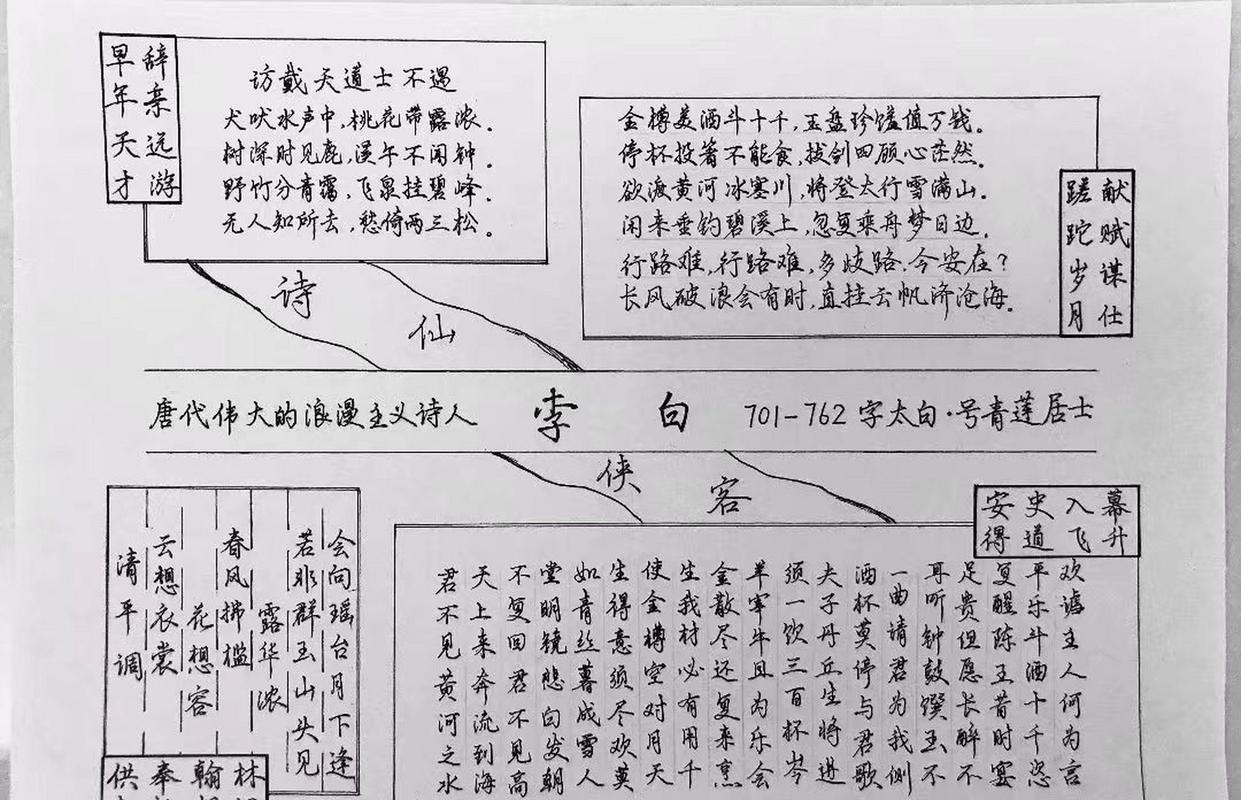 早年天才
辞亲远游
访戴天道士不遇
犬吠水声中,桃花带露浓.
树深时见鹿,溪午不闻钟.
野竹分青霭,飞泉挂碧峰.
无人知所去,愁倚两三松.
金樽美酒斗十千,玉盘珍馐值万钱.
停杯投箸不能食,拔剑四顾心茫然.
欲渡黄河冰塞川,将登太行雪满山.
闲来垂钓碧溪上,忽复乘舟梦日边.
行路难,行路难,多歧路,今安在?
长风破浪会有时,直挂云帆济沧海.
蹉跎岁月
献赋谋仕
诗仙
唐代伟大的浪漫主义诗人 李白 701-762 字太白·号青莲居士
侠客
清平调
云想衣裳
花想容
春风拂槛
露华浓
若非群玉山头见
会向瑶台月下逢
供奉翰林
安史入幕
得道飞升
君不见黄河之水
天上来奔流到海
不复回君不见高
堂明镜悲白发朝
如青丝暮成雪人
生得意须尽欢莫
使金樽空对月天
生我材必有用千
金散尽还复来烹
羊宰牛且为乐会
须一饮三百杯岑
夫子丹丘生将进
酒杯莫停与君歌
一曲请君为我侧
耳听钟鼓馔玉不
足贵但愿长醉不
复醒陈王昔时宴
平乐斗酒十千恣
欢谑主人何为言